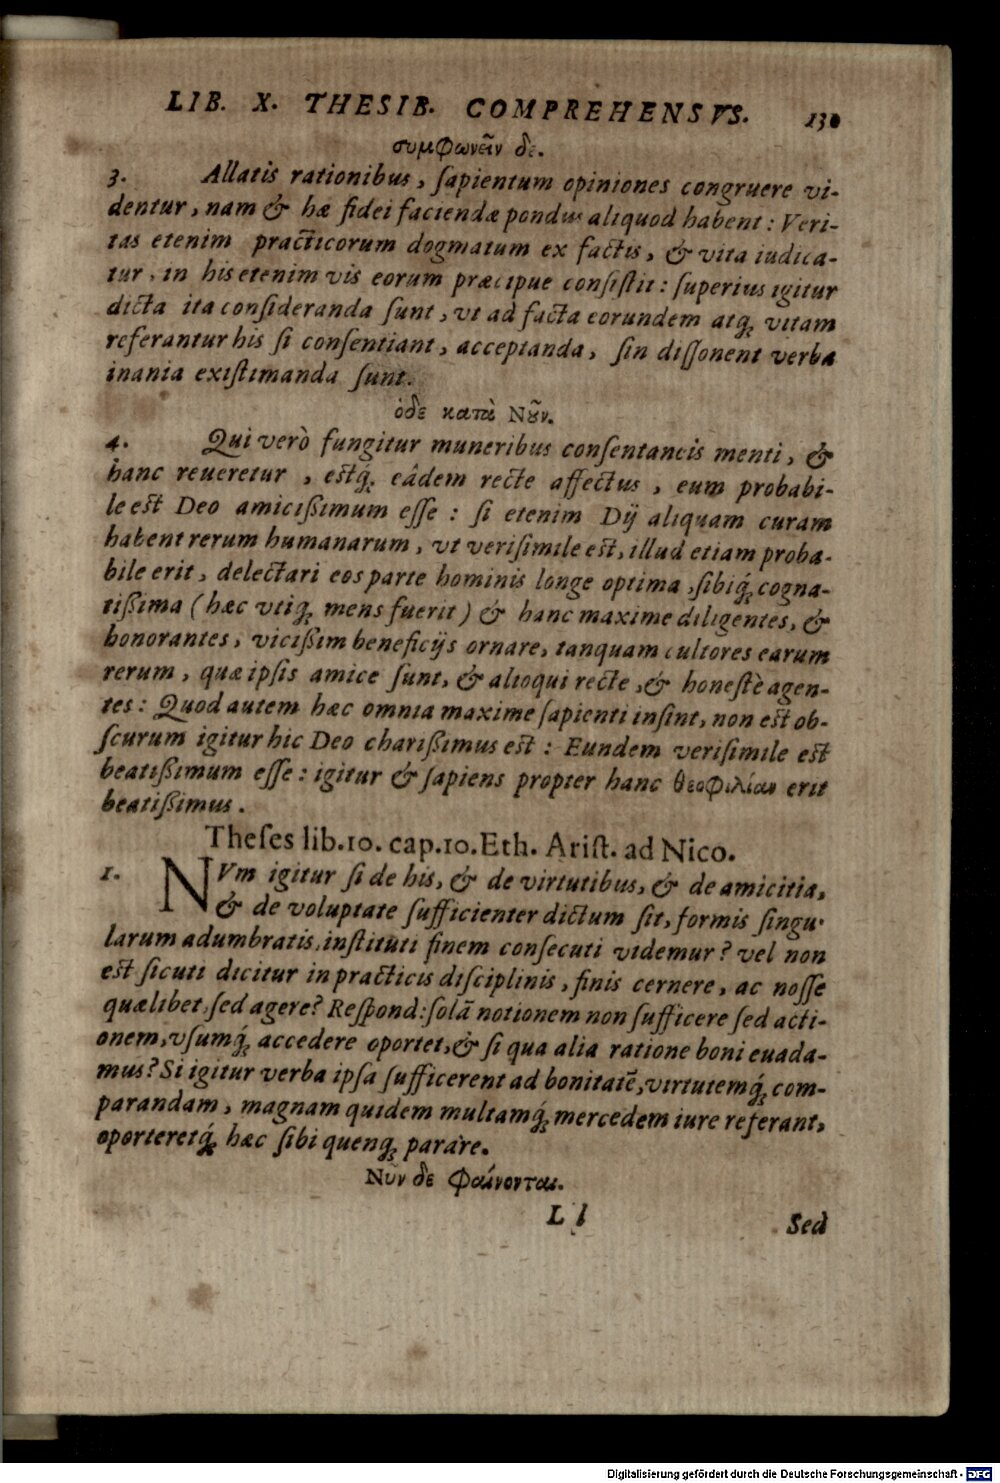 LIB. X. THESIB. COMPREHENSVS. 130
συμφωνεῖν δε.
3. Allatis rationibus, ſapientum opiniones congruere vi-
dentur, nam & hæ fidei faciendæ pondus aliquod habent: Veri-
tas etenim practicorum dogmatum ex factis, & vita iudica-
tur, in his etenim vis eorum præcipue conſiſtit: ſuperius igitur
dicta ita conſideranda ſunt, vt ad facta eorundem atq́; vitam
referantur his ſi conſentiant, acceptanda, ſin diſſonent verba
inania exiſtimanda ſunt.
ὁδε κατὰ Νοῦν.
4. Qui verò fungitur muneribus conſentaneis menti, &
hanc reueretur, eſtq́; eâdem recte affectus, eum probabi-
le eſt Deo amicißimum eſſe: ſi etenim Dij aliquam curam
habent rerum humanarum, vt veriſimile eſt, illud etiam proba-
bile erit, delectari eos parte hominis longe optima, ſibiq́; cogna-
tißima (hæc vtiq́; mens fuerit) & hanc maxime diligentes, &
honorantes, vicißim beneficijs ornare, tanquam cultores earum
rerum, quæ ipſis amice ſunt, & alioqui recte, & honeſtè agen-
tes: Quod autem hæc omnia maxime ſapienti inſint, non eſt ob-
ſcurum igitur hic Deo charißimus eſt: Eundem veriſimile eſt
beatißimum eſſe: igitur & ſapiens propter hanc θεοφιλίαν erit
beatißimus.
Theſes lib.10. cap.10.Eth. Ariſt. ad Nico.
1. NVm igitur ſi de his, & de virtutibus, & de amicitia,
& de voluptate ſufficienter dictum ſit, formis ſingu-
larum adumbratis, inſtituti finem conſecuti videmur? vel non
eſt ſicuti dicitur in practicis diſciplinis, finis cernere, ac noſſe
quælibet, ſed agere? Reſpond: ſolā notionem non ſufficere ſed acti-
onem, vſumq́; accedere oportet, & ſi qua alia ratione boni euada-
mus? Si igitur verba ipſa ſufficerent ad bonitatē, virtutemq́; com-
parandam, magnam quidem multamq́; mercedem iure referant,
oporteretq́; hæc ſibi quenq; parare.
Νῦν δε Φαίνονται.
L l Sed
Digitalisierung gefördert durch die Deutsche Forschungsgemeinschaft - DFG